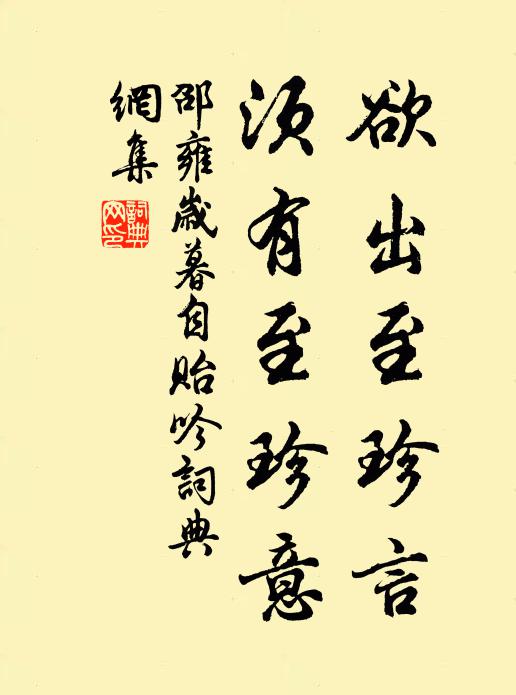 欲出至珍言
須有至珍意
邵雍歲暮自貽吟詞典
網集
詞典網印